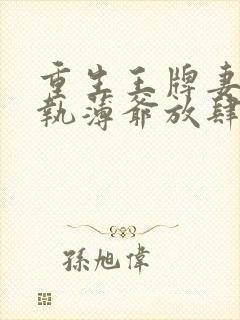 重生王牌妻
執薄爺放肆
孫旭偉